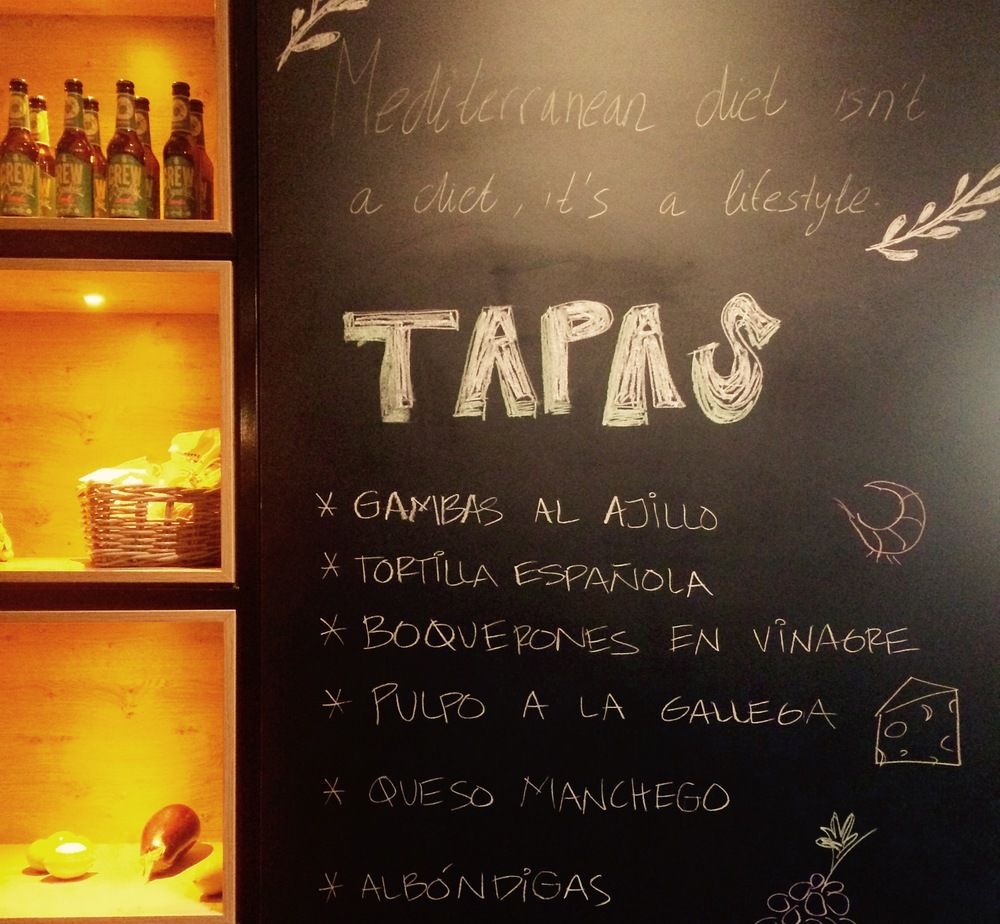 CREW
CREW
CREW
CREW
Mediterranean diet isn't
a diet, it's a lifestyle.
TAPAS
* GAMBAS AL AJILLO
* TORTILLA ESPAÑOLA
* BOQUERONES EN VINAGRE
* PULPO A LA GALLEGA
* QUESO MANCHEGO
* ALBÓNDIGAS